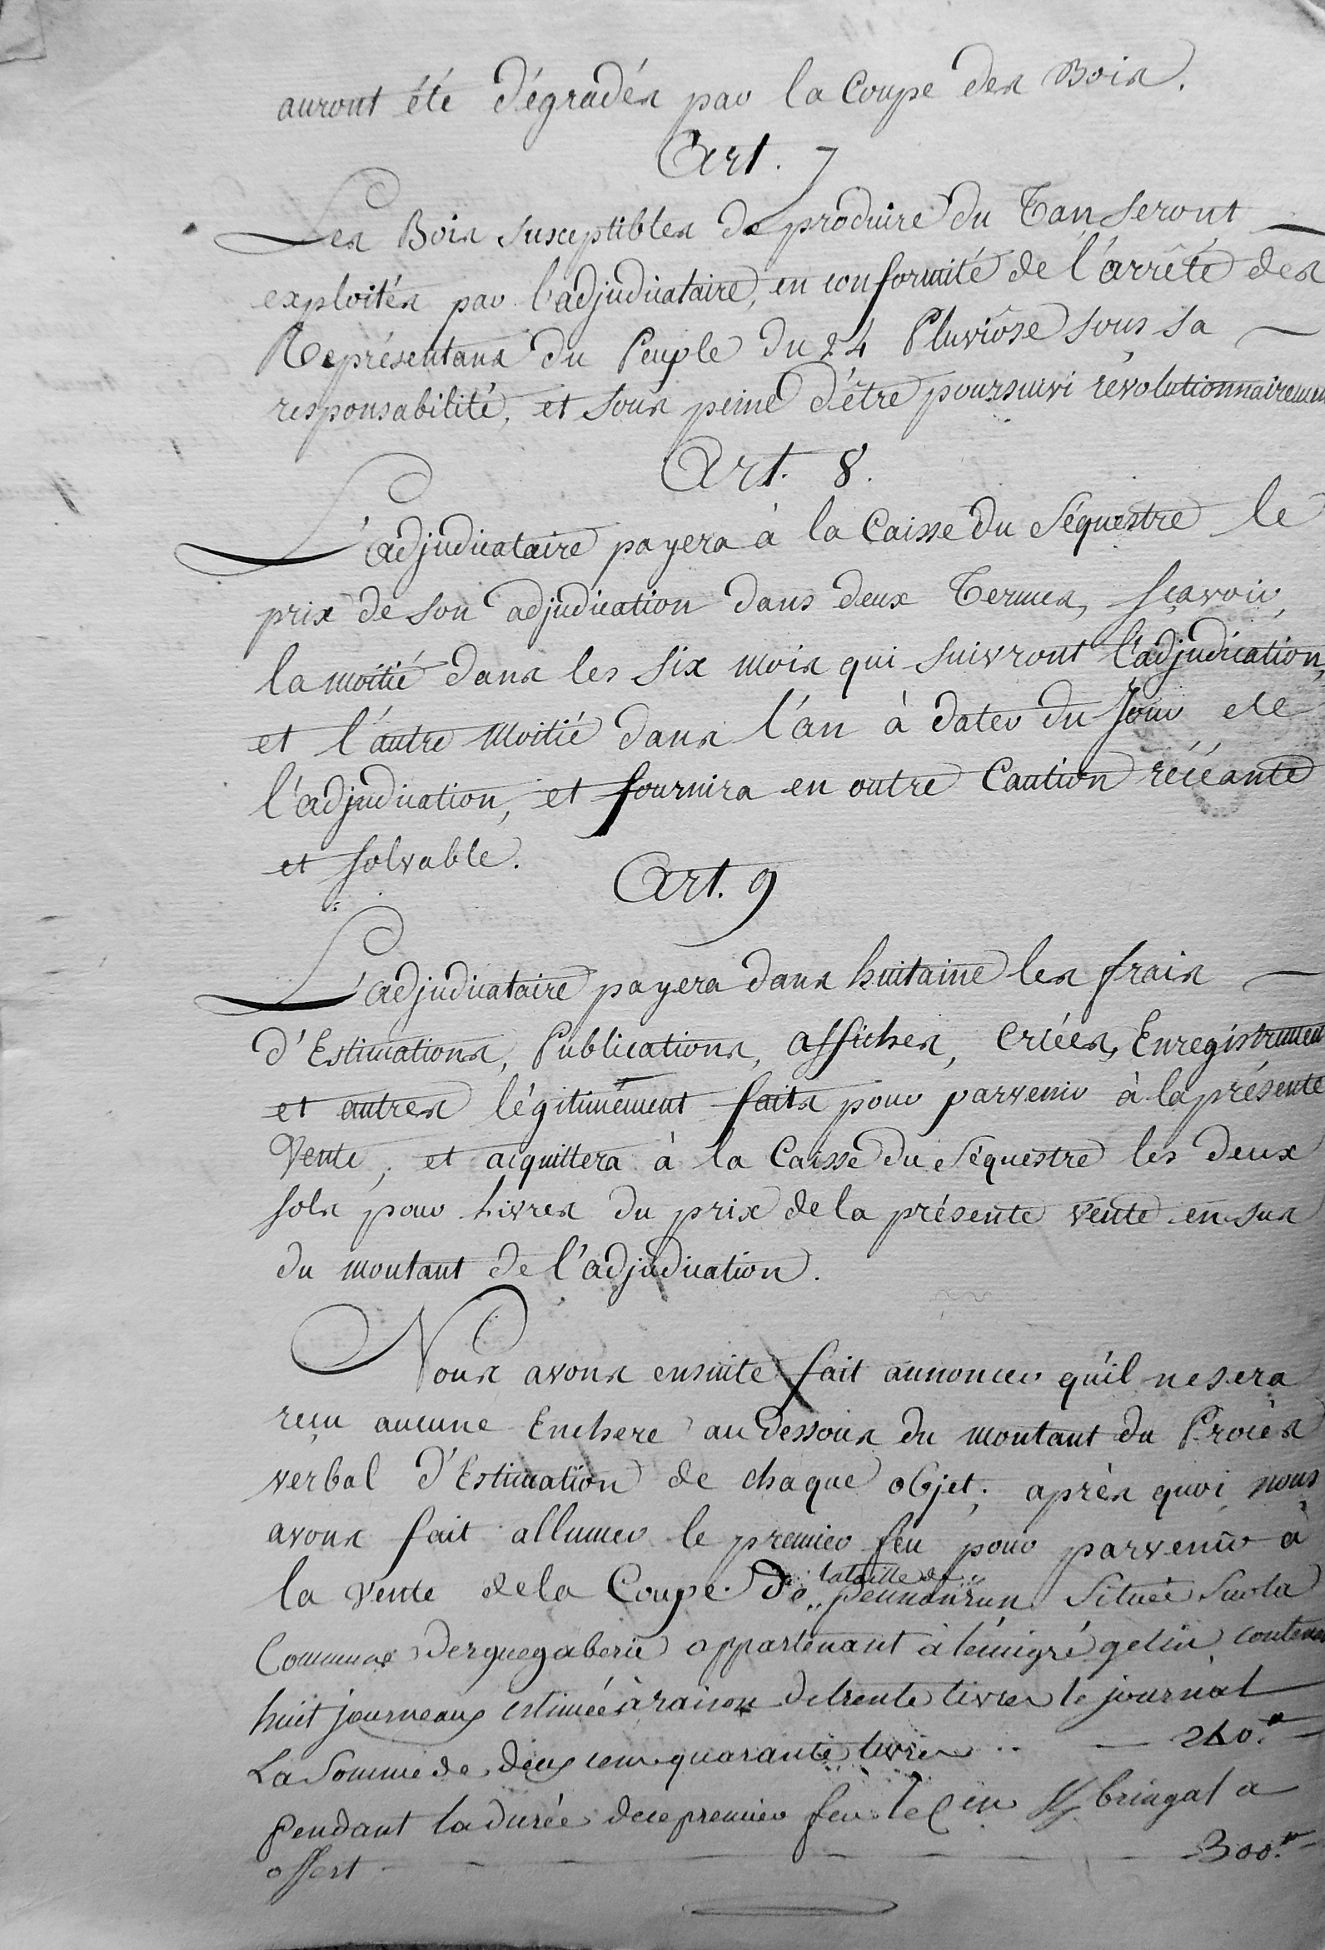 auront été dégradés par la Coupe des Bois.
Art. 7
Les Bois susceptibles de produire du Tan seront
exploités par l'adjudicataire, en conformité de l'arrêté des
Représentans du Peuple du 24 Pluviôse sous sa
responsabilité, et sous peine d'être poursuivi révolutionnairement
Art. 8.
L'adjudicataire payera à la Caisse du Séquestre le
prix de son adjudication dans deux Termes, sçavoir,
la moitié dans les six mois qui suivront l'adjudication,
et l'autre moitié dans l'an à dater du Jour de
l'adjudication, et fournira en outre Caution récéante
et solvable.
Art. 9
L'adjudicataire payera dans huitaine les frais
d'Estimations, Publications, affiches, criées, Enregistrement
et autres légitimement faits pour parvenir à la présente
Vente, et acquittera à la Caisse du Séquestre les deux
sols pour Livres du prix de la présente vente en sus
du montant de l'adjudication.
Nous avons ensuite fait annoncer qu'il ne sera
reçu aucune Enchere au dessous du montant du Procès
verbal d'Estimation de chaque objet; après quoi nous
avons fait allumer le premier feu pour parvenir à
la vente de la Coupe de lataille de pennanrun Située Sur la
Commune derguegaberic appartenant à lémigré gelin contenant
huit journeaux estimées à raison de trente livres le journal
La Somme de deux cent quarante livres .. — 240.#
Pendant la durée de ce premier feu le Cen Y. bringal a
offert — 300.#